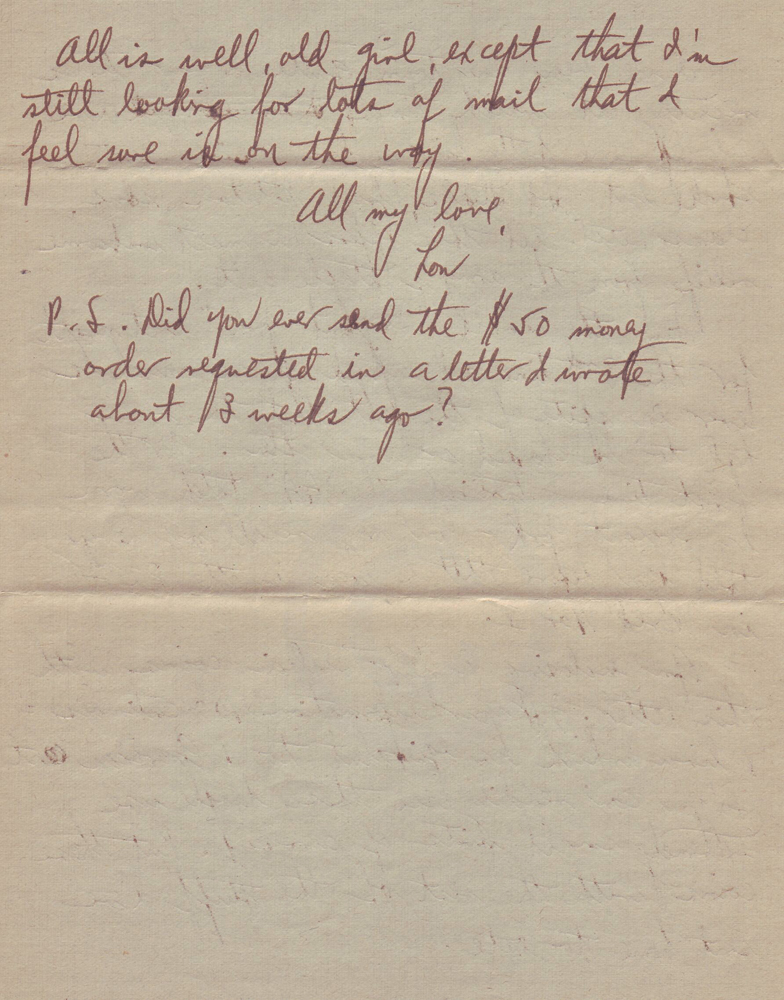 All is well, old girl, except that I'm
still looking for lots of mail that I
feel sure is on the way.
All my love,
Lou
P.S. Did you ever send the $50 money
order requested in a letter I wrote
about 3 weeks ago?